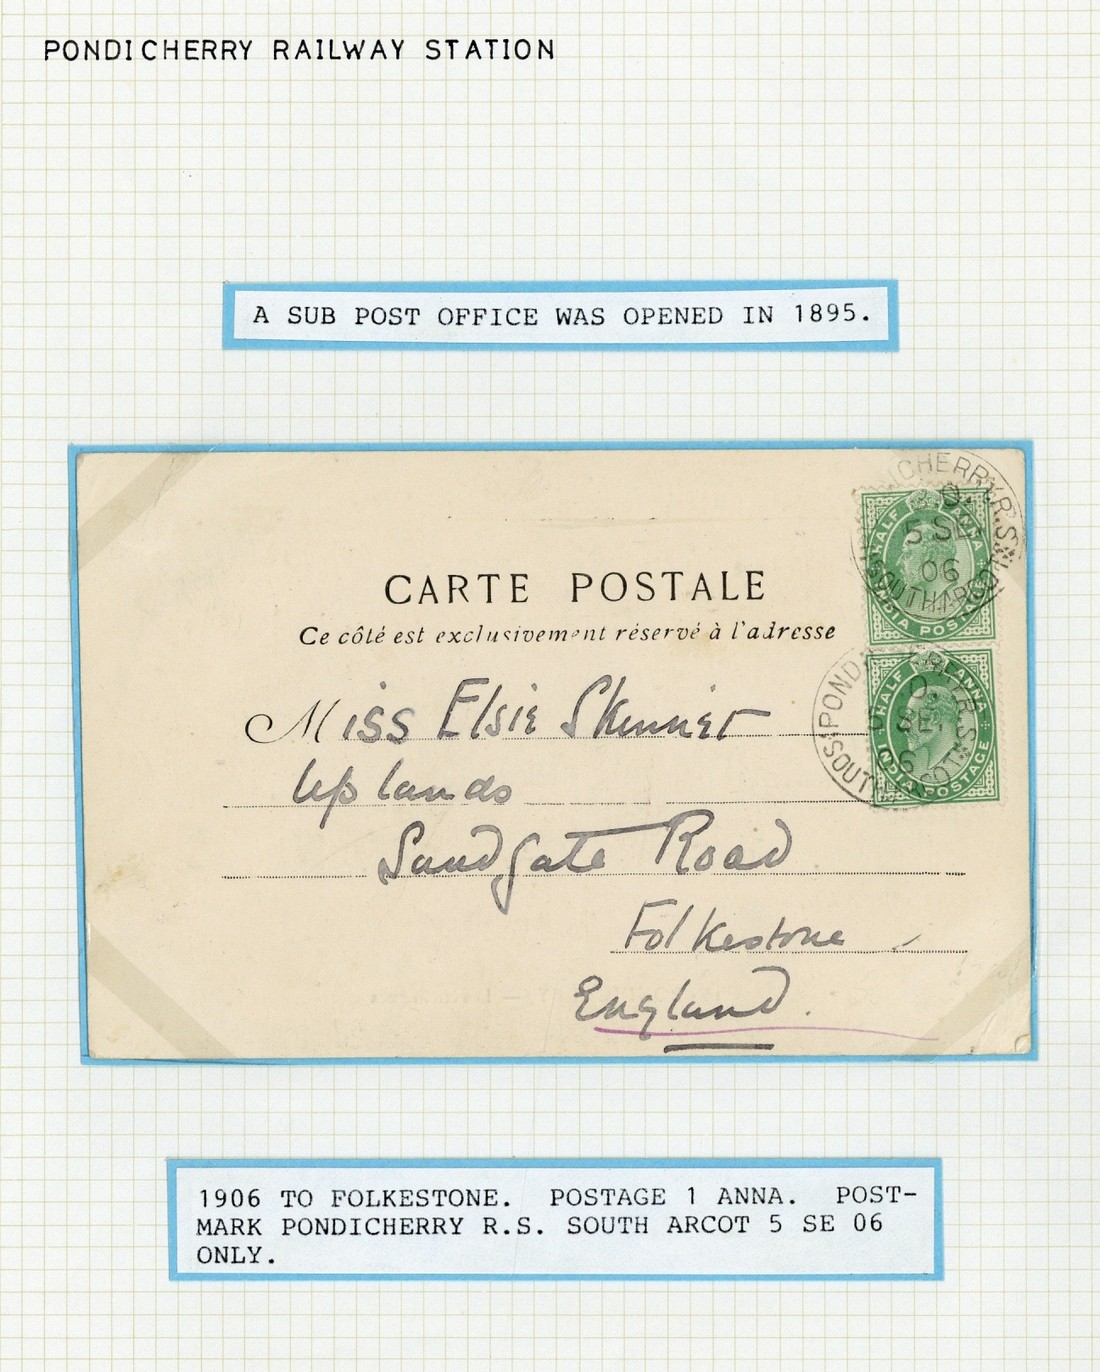 PONDICHERRY RAILWAY STATION
A SUB POST OFFICE WAS OPENED IN 1895.
CARTE POSTALE
Ce côté est exclusivement réservé à l'adresse
Miss Elsie Skinner
Uplands
Sandgate Road
Folkestone
England.
HALF ANNA
INDIA POSTAGE
CHERRY.R.S.
5 SE
06
SOUTH ARCOT
HALF ANNA
INDIA POSTAGE
POND
R.S.
5
SE
06
SOUTH COT
1906 TO FOLKESTONE. POSTAGE 1 ANNA. POST-
MARK PONDICHERRY R.S. SOUTH ARCOT 5 SE 06
ONLY.